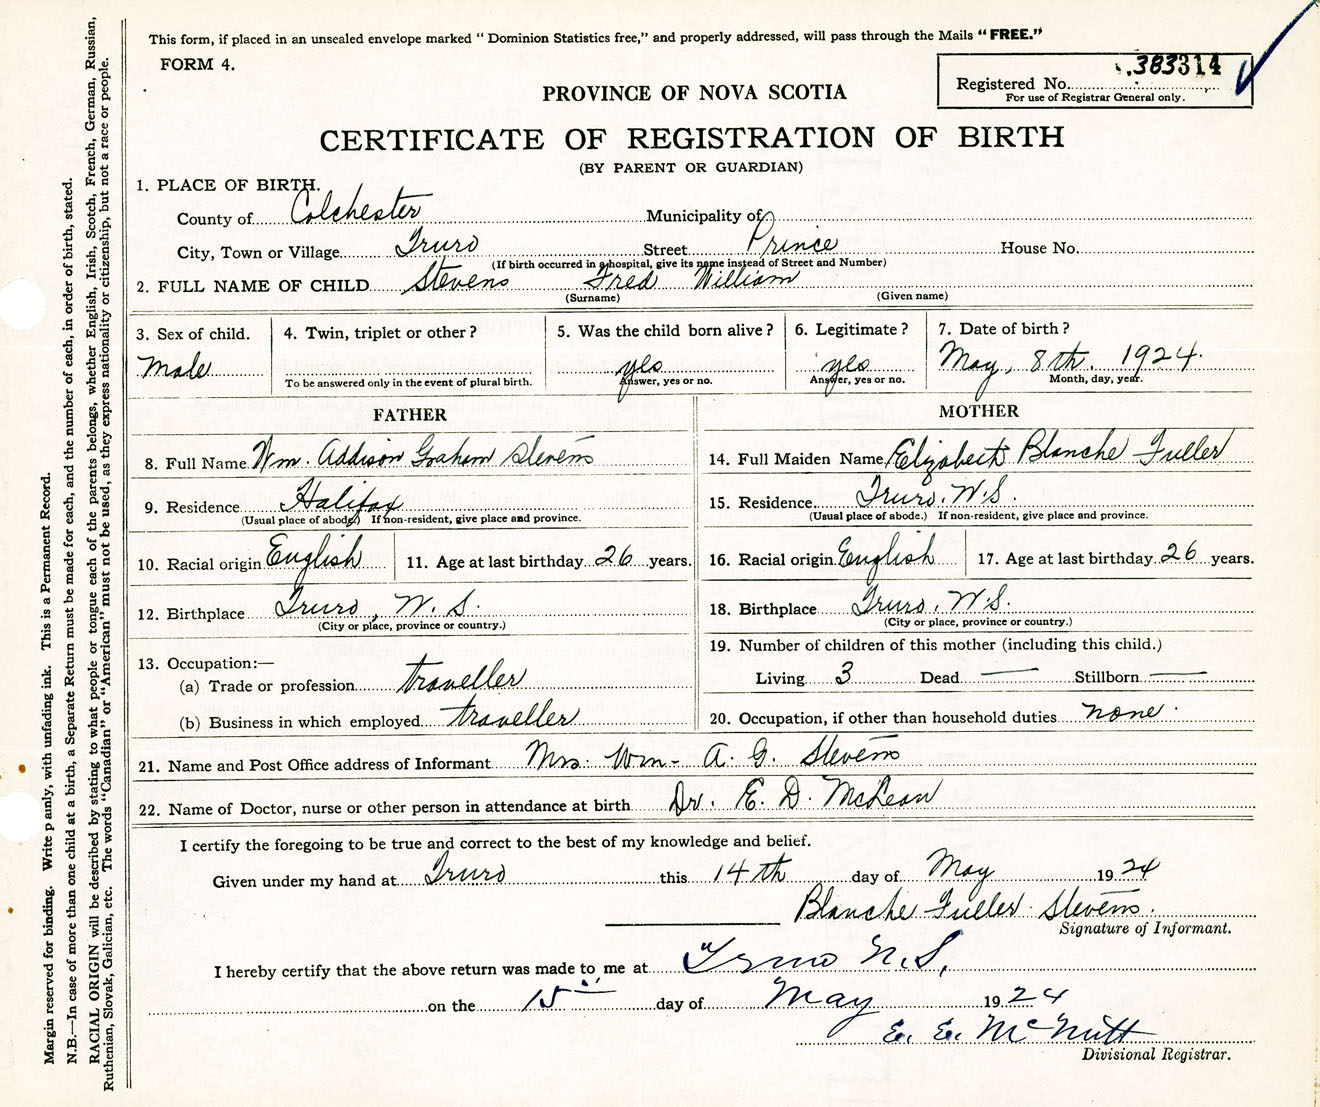 This form, if placed in an unsealed envelope marked " Dominion Statistics free," and properly addressed, will pass through the Mails " FREE."
FORM 4.
Registered No. 383314
For use of Registrar General only.
PROVINCE OF NOVA SCOTIA
CERTIFICATE OF REGISTRATION OF BIRTH
(BY PARENT OR GUARDIAN)
1. PLACE OF BIRTH.
County of Colchester Municipality of
City, Town or Village Truro Street Prince House No.
(If birth occurred in a hospital, give its name instead of Street and Number)
2. FULL NAME OF CHILD Stevens Fred William
(Surname) (Given name)
3. Sex of child. 4. Twin, triplet or other? 5. Was the child born alive? 6. Legitimate? 7. Date of birth?
Male yes yes May, 8th. 1924.
To be answered only in the event of plural birth. Answer, yes or no. Answer, yes or no. Month, day, year.
FATHER
8. Full Name Wm. Addison Graham Stevens
9. Residence Halifax
(Usual place of abode.) If non-resident, give place and province.
10. Racial origin English 11. Age at last birthday 26 years.
12. Birthplace Truro, N. S.
(City or place, province or country.)
13. Occupation:—
(a) Trade or profession traveller
(b) Business in which employed traveller
MOTHER
14. Full Maiden Name Elizabeth Blanche Fuller
15. Residence Truro. N.S.
(Usual place of abode.) If non-resident, give place and province.
16. Racial origin English 17. Age at last birthday 26 years.
18. Birthplace Truro. N.S.
(City or place, province or country.)
19. Number of children of this mother (including this child.)
Living 3 Dead — Stillborn —
20. Occupation, if other than household duties none.
21. Name and Post Office address of Informant Mrs. Wm. A. G. Stevens
22. Name of Doctor, nurse or other person in attendance at birth Dr. E. D. McLean
I certify the foregoing to be true and correct to the best of my knowledge and belief.
Given under my hand at Truro this 14th day of May 1924
Blanche Fuller Stevens.
Signature of Informant.
I hereby certify that the above return was made to me at Truro N.S,
on the 15th day of May 1924
E. E. McNutt
Divisional Registrar.
Margin reserved for binding. Write p anly, with unfading ink. This is a Permanent Record.
N.B.—In case of more than one child at a birth, a Separate Return must be made for each, and the number of each, in order of birth, stated.
RACIAL ORIGIN will be described by stating to what people or tongue each of the parents belongs, whether English, Irish, Scotch, French, German, Russian,
Ruthenian, Slovak, Galician, etc. The words "Canadian" or "American" must not be used, as they express nationality or citizenship, but not a race or people.